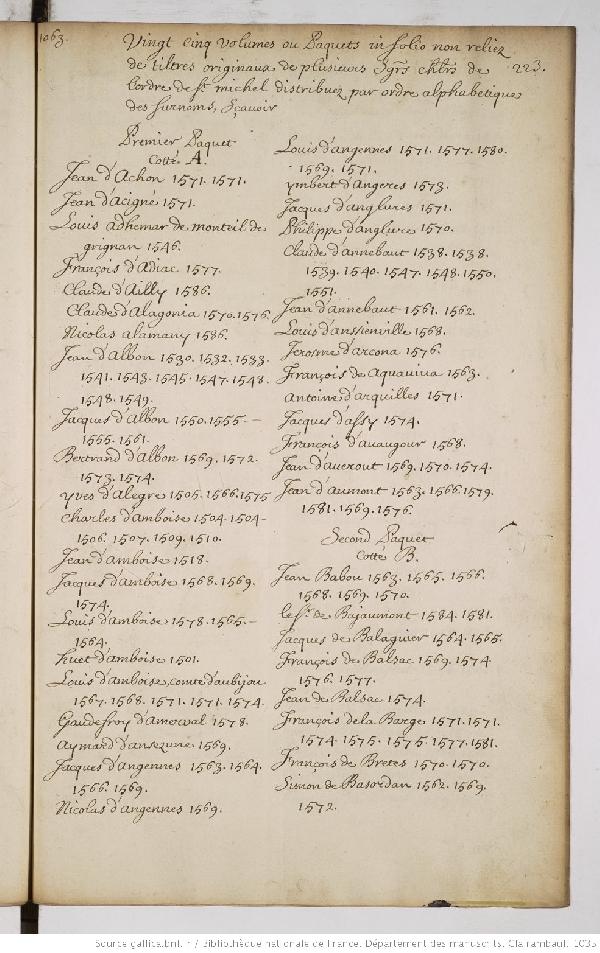 1063.
Vingt cinq volumes ou Paquets in folio non reliez
de tiltres originaux de plusieurs Sgrs chlrs de 223.
l'ordre de St. michel distribuez par ordre alphabetique
des surnoms, Sçavoir
Premier Paquet
Cotté A.
Jean d'Achon 1571. 1571.
Jean d'Acigné 1571.
Louis adhemar de monteil de
grignan 1546.
François d'Adiac 1577.
Claude d'Ailly 1586.
Claude d'Alagonia 1570. 1576.
Nicolas alamany 1586.
Jean d'Albon 1530. 1532. 1533.
1541. 1543. 1545. 1547. 1548.
1548. 1549.
Jacques d'Albon 1550. 1555. –
1555. 1561.
Bertrand d'Albon 1569. 1572.
1573. 1574.
yves d'Alegre 1505. 1566. 1575
Charles d'amboise 1504. 1504 –
1506. 1507. 1509. 1510.
Jean d'amboise 1518.
Jacques d'amboise 1568. 1569.
1574.
Louis d'amboise 1578. 1565. –
1564.
huet d'amboise 1501.
Louis d'amboise, comte d'aubijou
1567. 1568. 1571. 1571. 1574.
Gaudefroy d'amerval 1578.
Aymard d'ansezune 1569.
Jacques d'angennes 1563. 1564.
1566. 1569.
Nicolas d'angennes 1569.
Louis d'angennes 1571. 1577. 1580.
1569. 1571.
ymbert d'Angeres 1573.
Jacques d'anglures 1571.
Philippe d'anglure 1570.
Claude d'annebaut 1538. 1538.
1539. 1540. 1547. 1548. 1550.
1551.
Jean d'annebaut 1561. 1562.
Louis d'anssienville 1568.
Jerosme d'arcona 1576.
François de Aquaviva 1563.
antoine d'arquilles 1571.
Jacques d'assy 1574.
François d'avaugour 1568.
Jean d'averout 1569. 1570. 1574.
Jean d'aumont 1563. 1566. 1579.
1581. 1569. 1576.
Second Paquet
Cotté B.
Jean Babou 1563. 1565. 1566.
1568. 1569. 1570.
le sr. de Bajaumont 1584. 1581.
Jacques de Balaguier 1564. 1565.
François de Balsac 1569. 1574
1576. 1577.
Jean de Balsac 1574.
François de la Barge 1571. 1571.
1574. 1575. 1575. 1577. 1581.
François de Bretes 1570. 1570.
Simon de Basordan 1562. 1569.
1572.
Source gallica.bnf.fr / Bibliothèque nationale de France. Département des manuscrits. Clairambault 1035